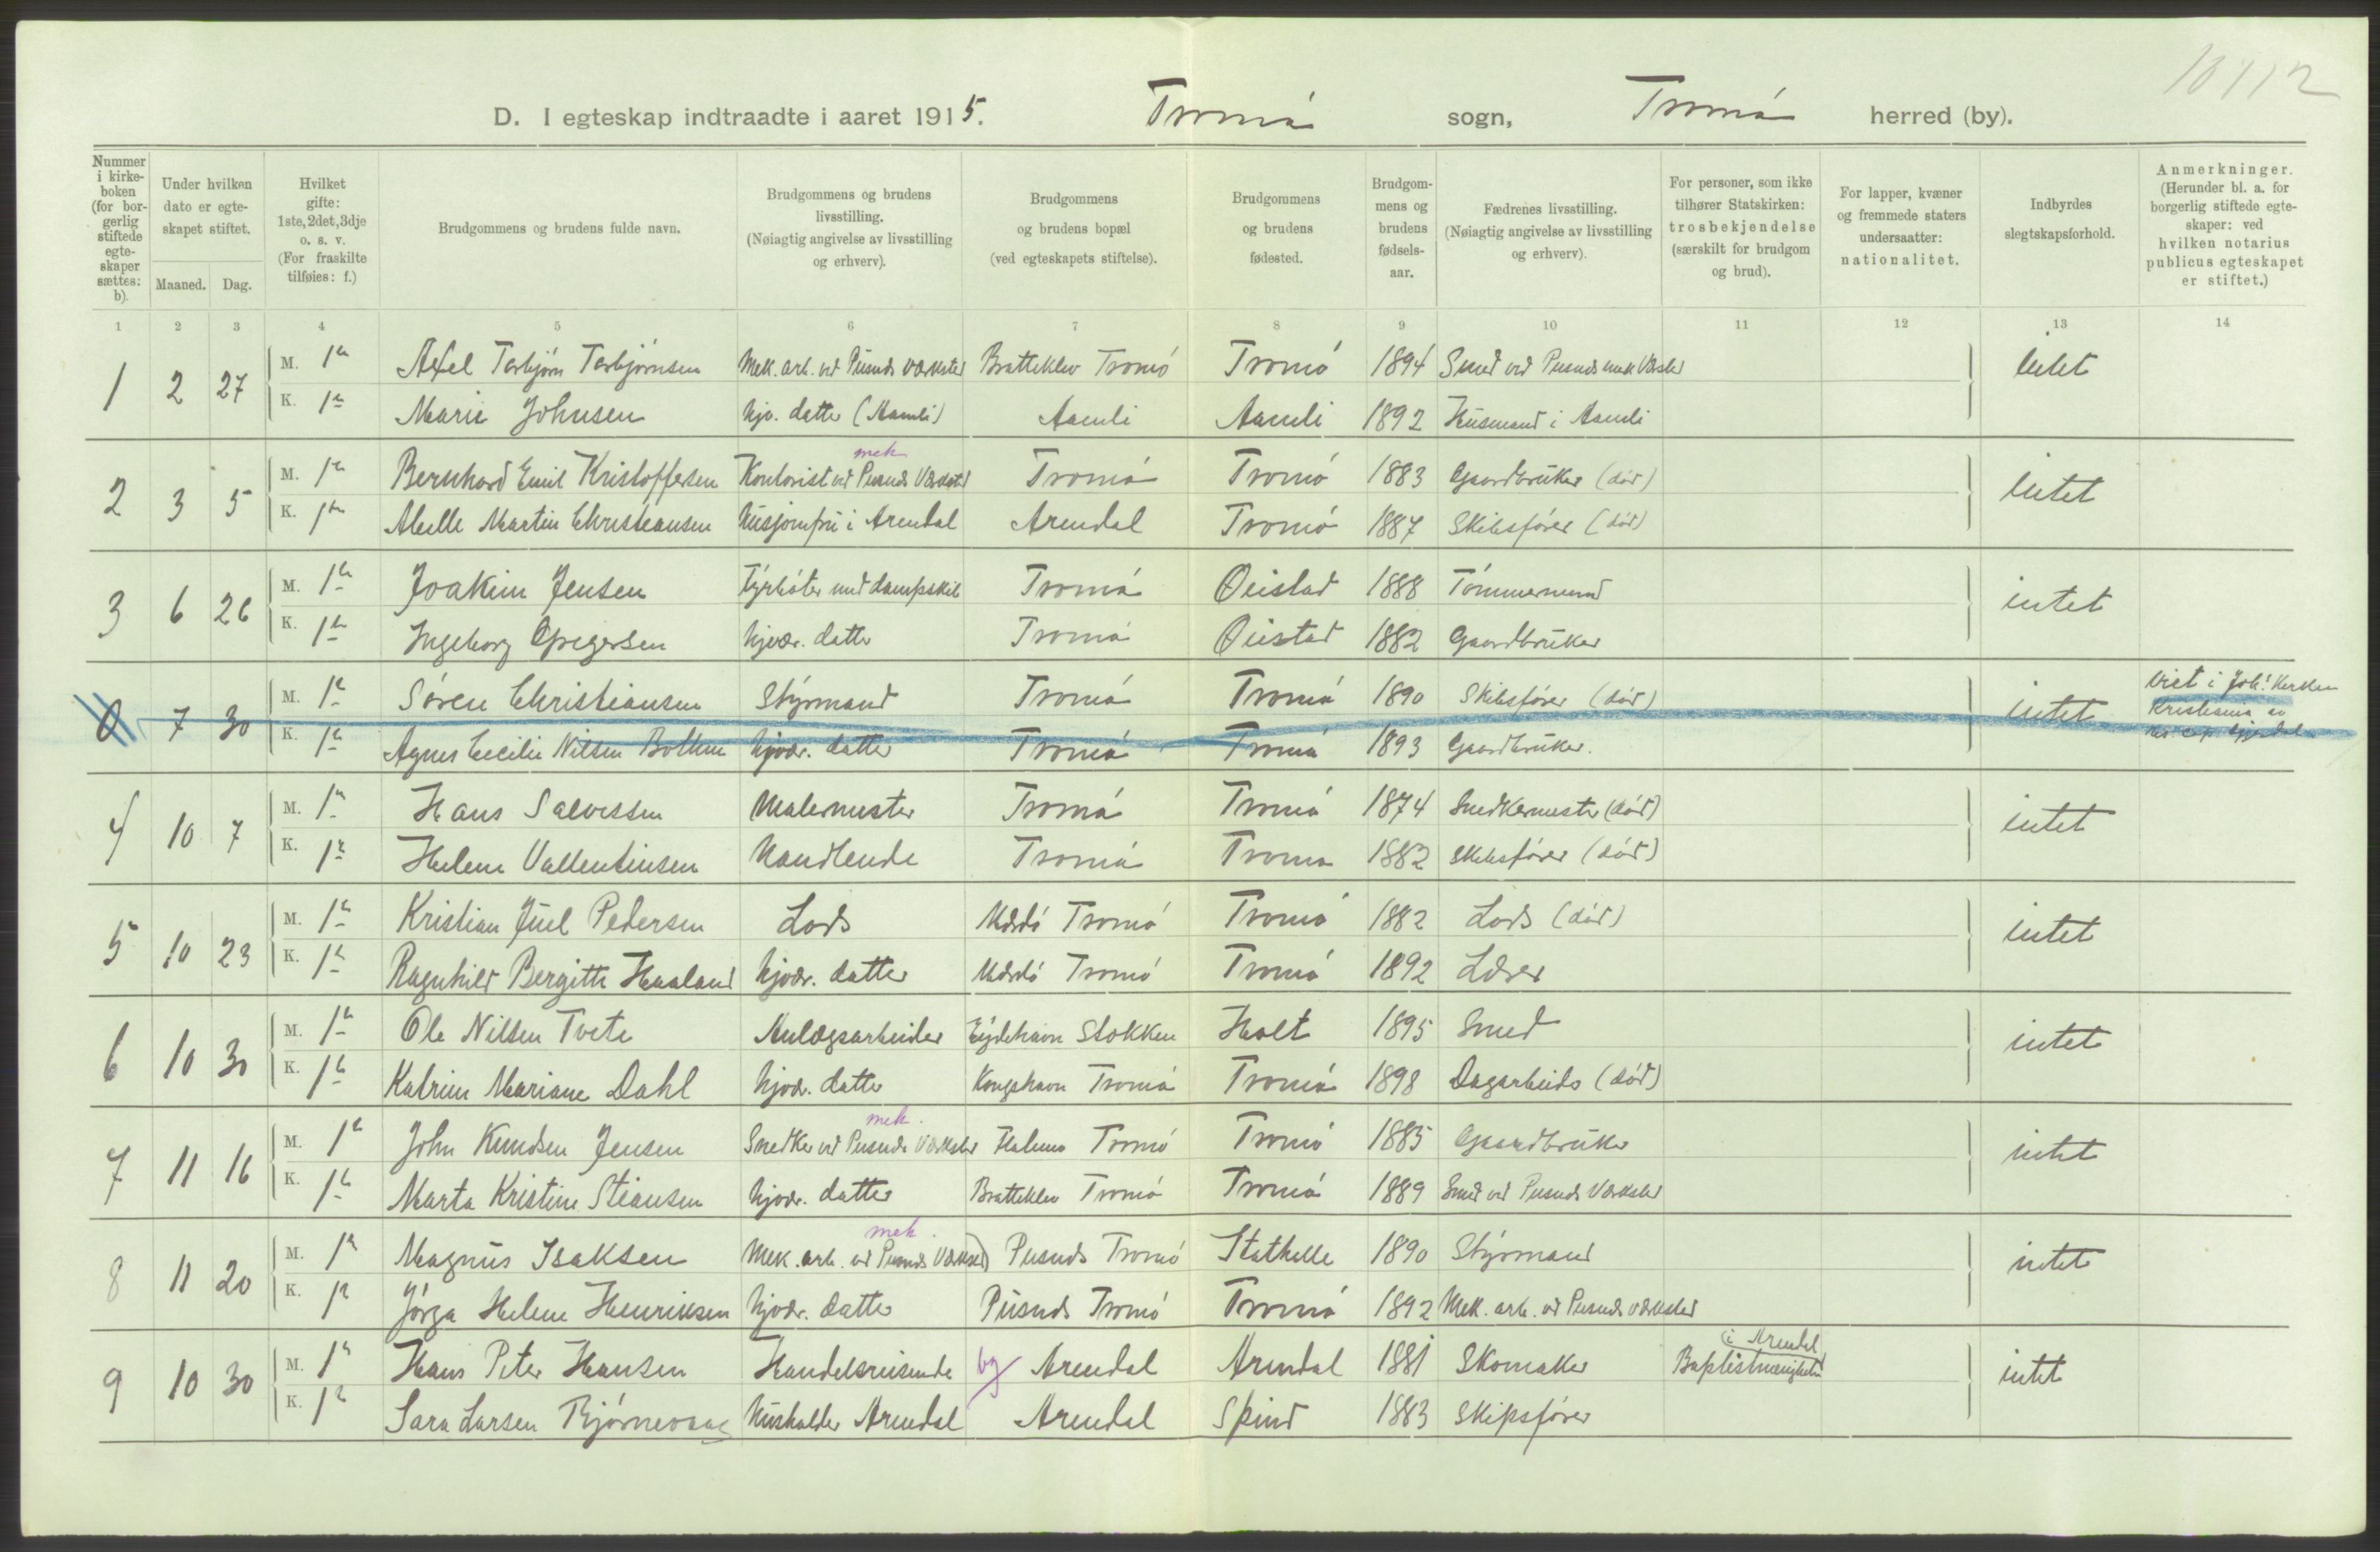 10112
D. I egteskap indtraadte i aaret 1915. Tromö sogn, Tromö herred (by).
Nummer i kirke-boken (for bor-gerlig stiftede egte-skaper sættes: b).
Under hvilken dato er egte-skapet stiftet.
Maaned. Dag.
Hvilket gifte: 1ste, 2det, 3dje o. s. v. (For fraskilte tilføies: f.)
Brudgommens og brudens fulde navn.
Brudgommens og brudens livsstilling. (Nøiagtig angivelse av livsstilling og erhverv).
Brudgommens og brudens bopæl (ved egteskapets stiftelse).
Brudgommens og brudens fødested.
Brudgom-mens og brudens fødsels-aar.
Fædrenes livsstilling. (Nøiagtig angivelse av livsstilling og erhverv).
For personer, som ikke tilhører Statskirken: trosbekjendelse (særskilt for brudgom og brud).
For lapper, kvæner og fremmede staters undersaatter: nationalitet.
Indbyrdes slegtskapsforhold.
Anmerkninger. (Herunder bl. a. for borgerlig stiftede egte-skaper: ved hvilken notarius publicus egteskapet er stiftet.)
1 2 3 4 5 6 7 8 9 10 11 12 13 14
1 2 27 M. 1ª Axel Torbjørn Torbjørnsen Mek. arb. ved Pusnds Værksted Bratteklev Tromö Tromö 1894 Smed ved Pusnds mek Værkst intet
K. 1ª Marie Johnsen hjv. datter (Aamli) Aamli Aamli 1892 Husmand i Aamli
mek
2 3 5 M. 1ª Bernhard Emil Kristoffersen Kontorist ved Pusnds Værksted Tromö Tromö 1883 Gaardbruker (död) intet
K. 1ª Martin Christiansen Husjomfru i Arendal Arendal Tromö 1887 Skibsförer (död)
3 6 26 M. 1ª Joakim Jensen Fyrböter med dampskib Tromö Öiestad 1888 Tömmermand intet
K. 1ª Ingeborg Gregersen hjvær. datter Tromö Öiestad 1882 Gaardbruker
0 7 30 M. 1ª Sören Christiansen Styrmand Tromö Tromö 1890 Skibsförer (död) intet Viet i Joh! Kirken Kristiania av
K. 1ª Agnes Cecilie Nilsen hjvær. datter Tromö Tromö 1893 Gaardbruker.
4 10 7 M. 1ª Hans Salvesen Malermester Tromö Tromö 1874 Snedkermester (död) intet
K. 1ª Helene Vallentinsen Handlende Tromö Tromö 1882 Skibsförer (död)
5 10 23 M. 1ª Kristian Juel Pedersen Lods Mærdö Tromö Tromö 1882 Lods (död) intet
K. 1ª Ragnhild Bergitte Haaland hjvær. datter Mærdö Tromö Tromö 1892 Lærer
6 10 30 M. 1ª Ole Nilsen Tvete Anlægsarbeider Eydehavn Stokken Holt 1895 Smed intet
K. 1ª Katrine Mariane Dahl hjvær. datter Kongshavn Tromö Tromö 1898 Dagarbeider (död)
mek.
7 11 16 M. 1ª John Knudsen Jensen Snedker ved Pusnds Værksted Tromö Tromö 1885 Gaardbruker intet
K. 1ª Marta Kristine Stiansen hjvær. datter Bratteklev Tromö Tromö 1889 Smed ved Pusnds Værksted
mek.
8 11 20 M. 1ª Magnus Isaksen Mek. arb. ved Pusnds Værksted Pusnds Tromö Stathelle 1890 Styrmand intet
K. 1ª Helene Henriksen hjvær. datter Pusnds Tromö Tromö 1892 Mek. arb. ved Pusnds værksted
i Arendal
9 10 30 M. 1ª Hans Peter Hansen Handelsreisende by Arendal Arendal 1881 Skomaker Baptistmenigheten intet
K. 1ª Sara Larsen Bjørnevaag Husholder Arendal Arendal Spind 1883 Skipsförer